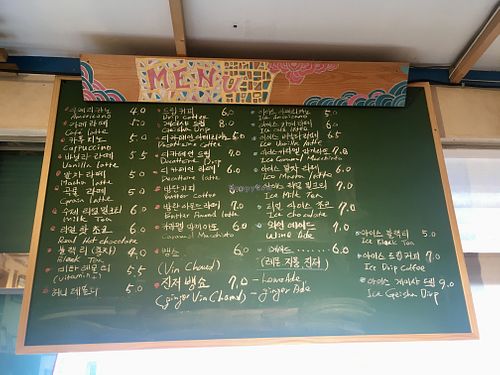 MENU
아메리카노 4.0
Americano
카페 라떼 5.0
Cafe latte
카푸치노 5.0
Cappuccino
바닐라 라떼 5.5
Vanilla latte
말차 라떼
Matcha latte
곡물 라떼
Grain latte
수제 밀크티 6.0
Milk Tea
리얼 핫 초코 6.0
Real Hot chocolate
블랙티 (홍차) 4.0
Black Tea
비타 레몬티 5.5
(vitamin)
허니 레몬티 5.5
드립 커피 6.0
Drip coffee
게이샤 드립 8.0
Geisha Drip
Decaffeine Coffee
디카페인 드립 7.0
Decaffeine Drip
디카페인 라떼 6.0
Decaffeine latte
버터 커피 6.0
Butter Coffee
버터 아몬드 라떼 7.0
Butter Almond latte
카라멜 마끼아또 6.0
Caramel Macchiato
뱅쇼 6.0
(Vin Chaud)
진저 뱅쇼 7.0
(ginger Vin Chaud)
아이스 아메리카노 5.0
Ice Americano
아이스 카페 라떼 6.0
Ice Cafe latte
아이스 바닐라 라떼 6.5
Ice Vanilla latte
아이스 카라멜 마끼아또 7.0
Ice Caramel Macchiato
아이스 말차 라떼 6.0
Ice Matcha latte
아이스 밀크티 7.0
Ice Milk Tea
리얼 아이스 초코 7.0
Ice chocolate
와인 에이드 7.0
Wine Ade
에이드 6.0
(레몬 자몽 진저)
- homeAde
- ginger Ade
아이스 블랙티 5.0
Ice Black Tea
아이스 드립 커피 7.0
Ice Drip Coffee
아이스 게이샤 드립 9.0
Ice Geisha Drip